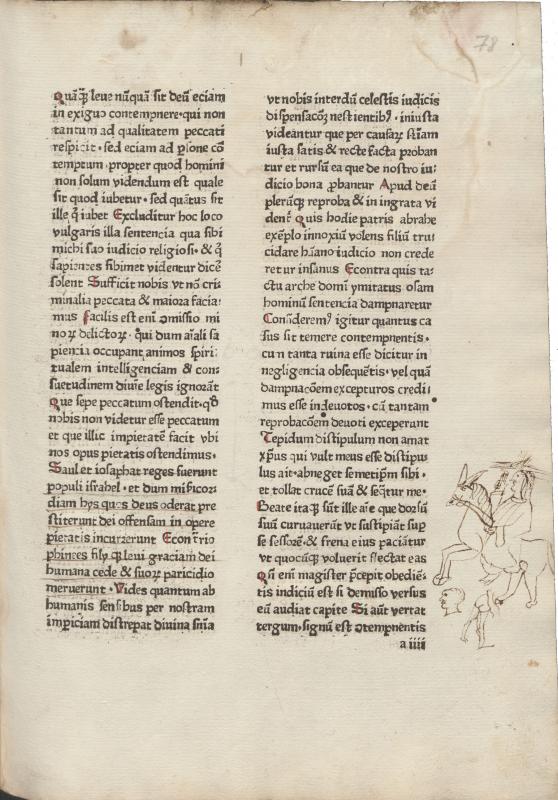 78
Quāq̃ leue nūquā sit deū eciam
in exiguo contempnere·qui non
tantum ad qualitatem peccati
respicit·sed eciam ad psone cō
temptum·propter quod homini
non solum videndum est quale
sit quod iubetur·sed quātus sit
ille q̃ iubet Excluditur hoc loco
vulgaris illa sentencia qua sibi
michi suo iudicio religiosi·& q̃
sapientes sibimet videntur dicē
solent Sufficit nobis vt nō cri
minalia peccata & maiora facia
mus facilis est eni omissio mi
noꝝ delictoꝝ·qui dum aīali sa
piencia occupant animos spiri:
tualem intelligenciam & con:
suetudinem diuīe legis ignorāt
Que sepe peccatum ostendit·qđ
nobis non videtur esse peccatum
et que illic impietatē facit vbi
nos opus pietatis ostendimus·
Saul et iosaphat reges fuerunt
populi israhel·et dum mīsicor:
diam hys quos deus oderat pre
stiterunt dei offensam in opere
pietatis incurrerunt Econtrio
phinees fily q̄ leui graciam dei
humana cede & suoꝝ paricidio
meruerunt·Vides quantum ab
humanis sensibus per nostram
impiciam distrepat diuina sn̄ia
vt nobis interdū celestis iudicis
dispensacōꝫ nestientibꝰ·iniusta
videantur que per causaꝝ sciam
iusta satis & recte facta proban
tur et rursū ea que de nostro iu:
dicio bona ꝓbantur Apud deū
pleruq̄ reproba & in ingrata vi
denť Quis hodie patris abrahe
exēplo innoxiū volens filiū tru:
cidare hūano iudicio non crede
retur insanus Econtra quis ta:
ctū arche domī ymitatus osam
hominū sentencia dampnaretur
Consideremꝰ igitur quantus ca
sus sit temere contempnentis·
cum tanta ruina esse dicitur in
negligencia obsequētis·vel quā
dampnacōem excepturos credi
mus esse indeuotos·cū tantam
reprobacōem deuoti exceperunt
Tepidum distipulum non amat
xp̄us qui vult meus esse distipu
lus ait·abneget semetipm̄ sibi·
et tollat crucē suā & seq̄tur me·
Beate itaq̄ sūt ille aīe que dorsū
suū curuauerūt vt sustipiāt sup
se sessorē & frena eius paciātur
vt quocūq̄ voluerit flectat eas
Qn̄ enī magister p̄cepit obediē:
tis indiciū est si demisso versus
eū audiat capite Si aūt vertat
tergum·signū est ɔtempnentis
a iiii